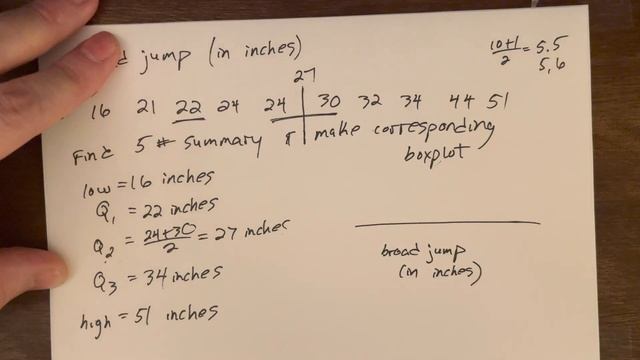 d jump (in inches)
10+1/2 = 5.5
5,6
27
16 21 22 24 24 30 32 34 44 51
Find 5 # summary & make corresponding
boxplot
low = 16 inches
Q1 = 22 inches
Q2 = 24+30/2 = 27 inches
Q3 = 34 inches
high = 51 inches
broad jump
(in inches)